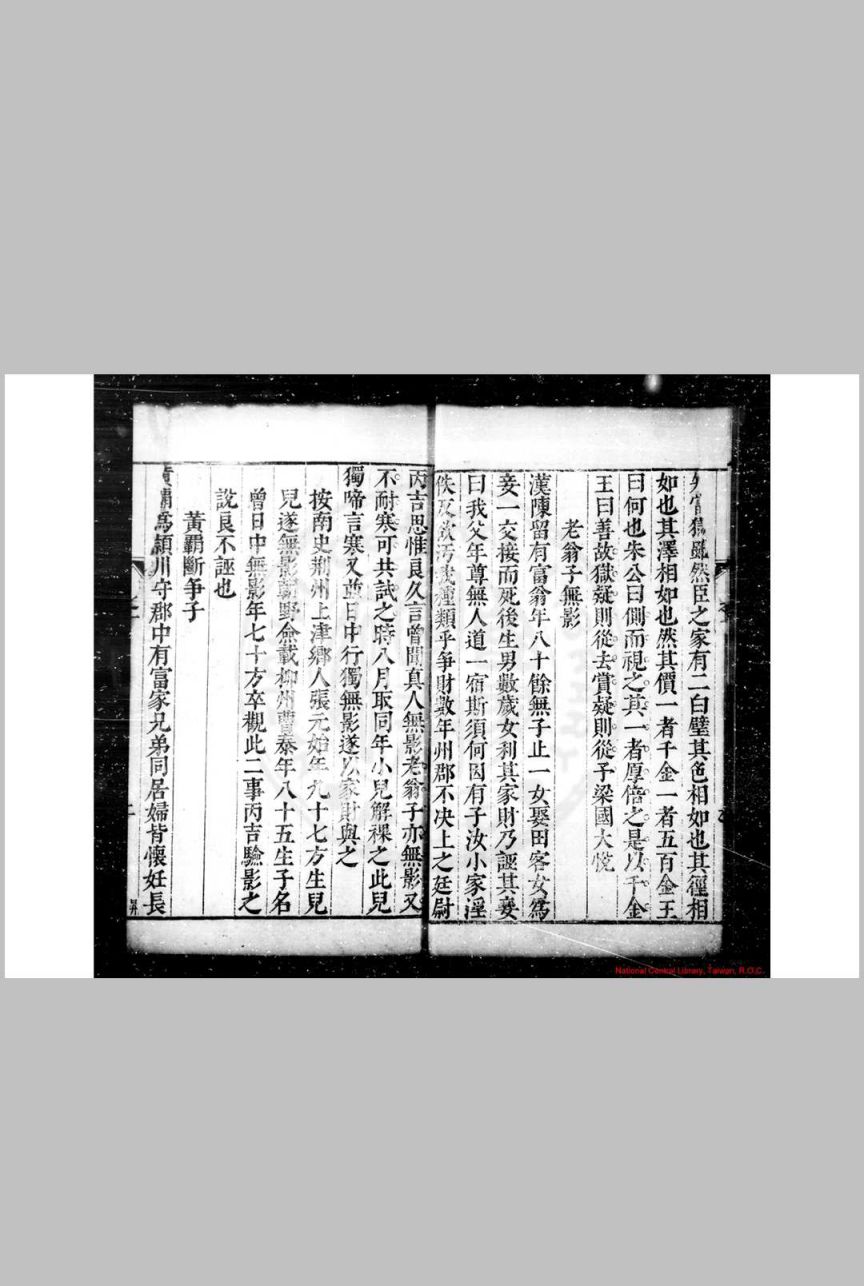 當獄雖然臣之家有二白璧其色相如也其徑相
如也其澤相如也然其價一者千金一者五百金王
曰何也朱公曰側而視之其一者厚倍之是以千金
王曰善故獄疑則從去賞疑則從予梁國大悅
老翁子無影
漢陳留有富翁年八十餘無子止一女娶田客女爲
妾一交接而死後生男數歲女利其家財乃誣其妾
曰我父年尊無人道一宿斯須何因有子汝小家淫
佚反欲汚我種類乎爭財數年州郡不決上之廷尉
丙吉思惟良久言曾聞真人無影老翁子亦無影又
不耐寒可共試之時八月取同年小兒解裸之此兒
獨啼言寒又並日中行獨無影遂以家財與之
按南史荆州上津鄉人張元始年九十七方生兒
兒遂無影朝野僉載柳州曹泰年八十五生子名
曾日中無影年七十方卒觀此二事丙吉驗影之
說良不誣也
黃霸斷爭子
黃霸爲潁川守郡中有富家兄弟同居婦皆懷妊長
National Central Library, Taiwan, R.O.C.